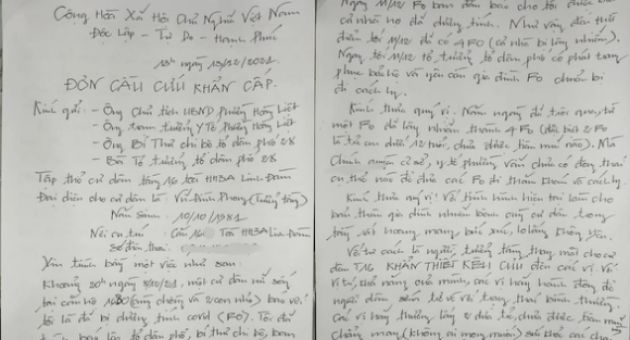 Cộng Hòa Xã Hội Chủ Nghĩa Việt Nam
Độc Lập - Tự Do - Hạnh Phúc
ngày 13/12/2021
ĐƠN CẦU CỨU KHẨN CẤP.
Kính gửi: - Ông Chủ tịch UBND Phường Hoàng Liệt
- Ông trạm trưởng Y Tế Phường Hoàng Liệt
- Ông Bí Thư chi bộ tổ dân phố 28
- Bà Tổ trưởng tổ dân phố 28
Tập thể cư dân tầng 16 tòa HH3A Linh Đàm
Đại diện cho cư dân là Vũ Đình Phong (Trưởng tầng)
Năm sinh: 10/10/1981
Nơi cư trú: Căn Tòa HH3A Linh Đàm
Số điện thoại:
Xin trình bày một việc như sau:
Khoảng 20h ngày 8/12/21, một cư dân nữ sống
tại căn hộ (cùng chồng và 2 con nhỏ) báo với
tôi là đã bị dương tính covid (F0). Tôi đã
báo tổ dân phố, bí thư chi bộ, ban
Ngày 11/12 F0 ban đầu báo cho tôi được
cả nhà họ đã dương tính. Như vậy đến thời
điểm tối 11/12 đã có 4 F0 (cả nhà bị lây nhiễm).
Ngày tối 11/12 tổ trưởng tổ dân phố có phát trang
phục bảo hộ và yêu cầu gia đình F0 chuẩn bị
đi cách ly.
Kính thưa quý vị. Năm ngày đã trôi qua, từ
một F0 đã lây nhiễm thành 4 F0 (đặc biệt 2 F0
là trẻ em dưới 12 tuổi, chưa được tiêm mũi nào). Mà
Chính quyền cơ sở, y tế phường vẫn chưa có động thái
cụ thể nào để đưa các F0 đi thăm khám và cách ly.
Kính thưa quý vị! Với tình hình hiện tại làm cho
bản thân gia đình nhiễm bệnh cùng cư dân trong
tầng rất hoang mang bức xúc, lo lắng không yên.
Với tư cách là người trưởng tầng thay mặt cho cư
dân T16 KHẨN THIẾT KÊU CỨU đến các vị. Với
vị trí, khả năng của mình, các vị hãy hành động để
người dân sớm trở về với trạng thái bình thường.
Các vị hãy thương lấy 2 đứa trẻ chưa được tiêm mũi
Chẳng may (không ai mong muốn) sức khỏe các cháu